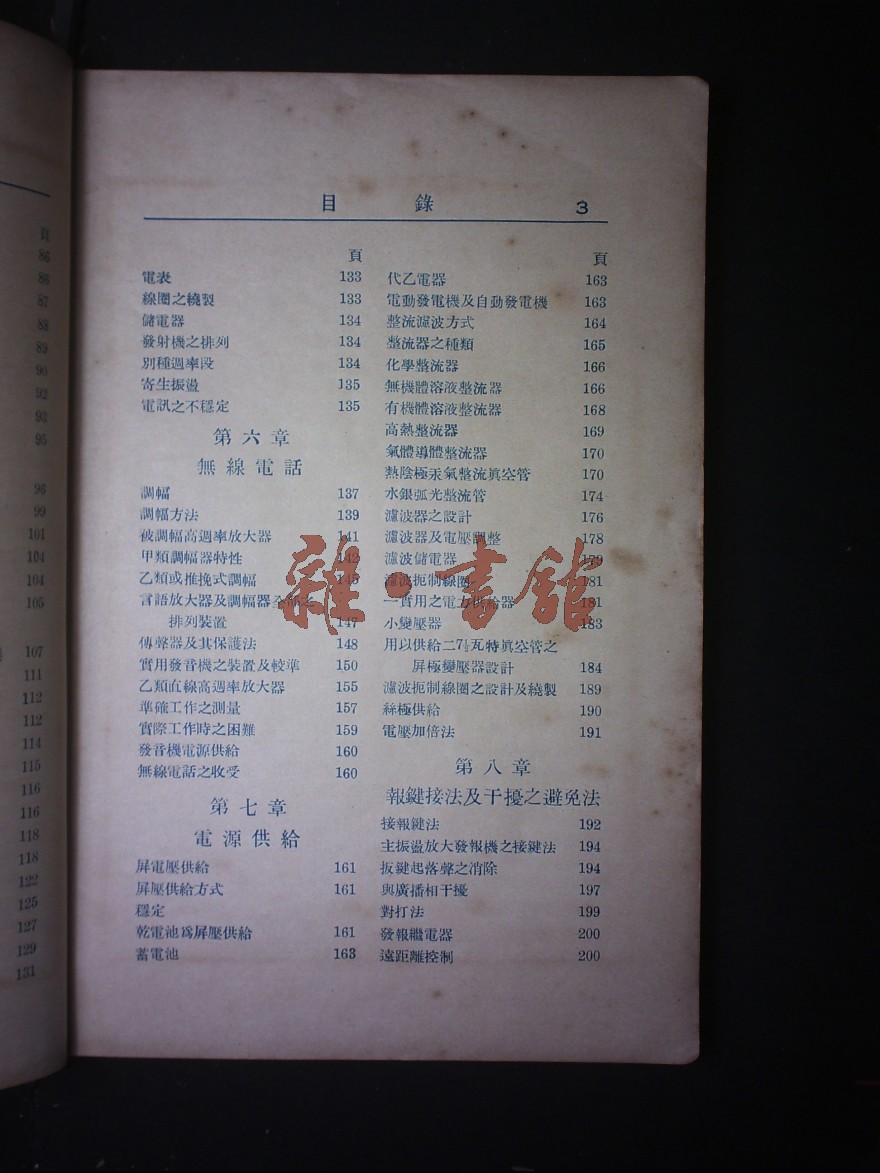 目錄 3
頁
電表 133
線圈之繞製 133
儲電器 134
發射機之排列 134
別種週率段 134
寄生振盪 135
電訊之不穩定 135
第六章
無線電話
調幅 137
調幅方法 139
被調幅高週率放大器 141
甲類調幅器特性 142
乙類或推挽式調幅 145
言語放大器及調幅器全部之
排列裝置 147
傳聲器及其保護法 148
實用發音機之裝置及較準 150
乙類直線高週率放大器 155
準確工作之測量 157
實際工作時之困難 159
發音機電源供給 160
無線電話之收受 160
第七章
電源供給
屏電壓供給 161
屏壓供給方式 161
穩定
乾電池爲屏壓供給 161
蓄電池 163
頁
代乙電器 163
電動發電機及自動發電機 163
整流濾波方式 164
整流器之種類 165
化學整流器 166
無機體溶液整流器 166
有機體溶液整流器 168
高熱整流器 169
氣體導體整流器 170
熱陰極汞氣整流眞空管 170
水銀弧光整流管 174
濾波器之設計 176
濾波器及電壓調整 178
濾波儲電器 179
濾波扼制線圈 181
一實用之電力供給器 181
小變壓器 183
用以供給二7½瓦特眞空管之
屏極變壓器設計 184
濾波扼制線圈之設計及繞製 189
絲極供給 190
電壓加倍法 191
第八章
報鍵接法及干擾之避免法
接報鍵法 192
主振盪放大發報機之接鍵法 194
扳鍵起落聲之消除 194
與廣播相干擾 197
對打法 199
發報繼電器 200
遠距離控制 200
頁
86
86
87
88
89
90
92
93
95
96
99
101
104
104
105
107
111
112
112
114
115
116
116
118
118
122
125
127
129
131
雜·書館